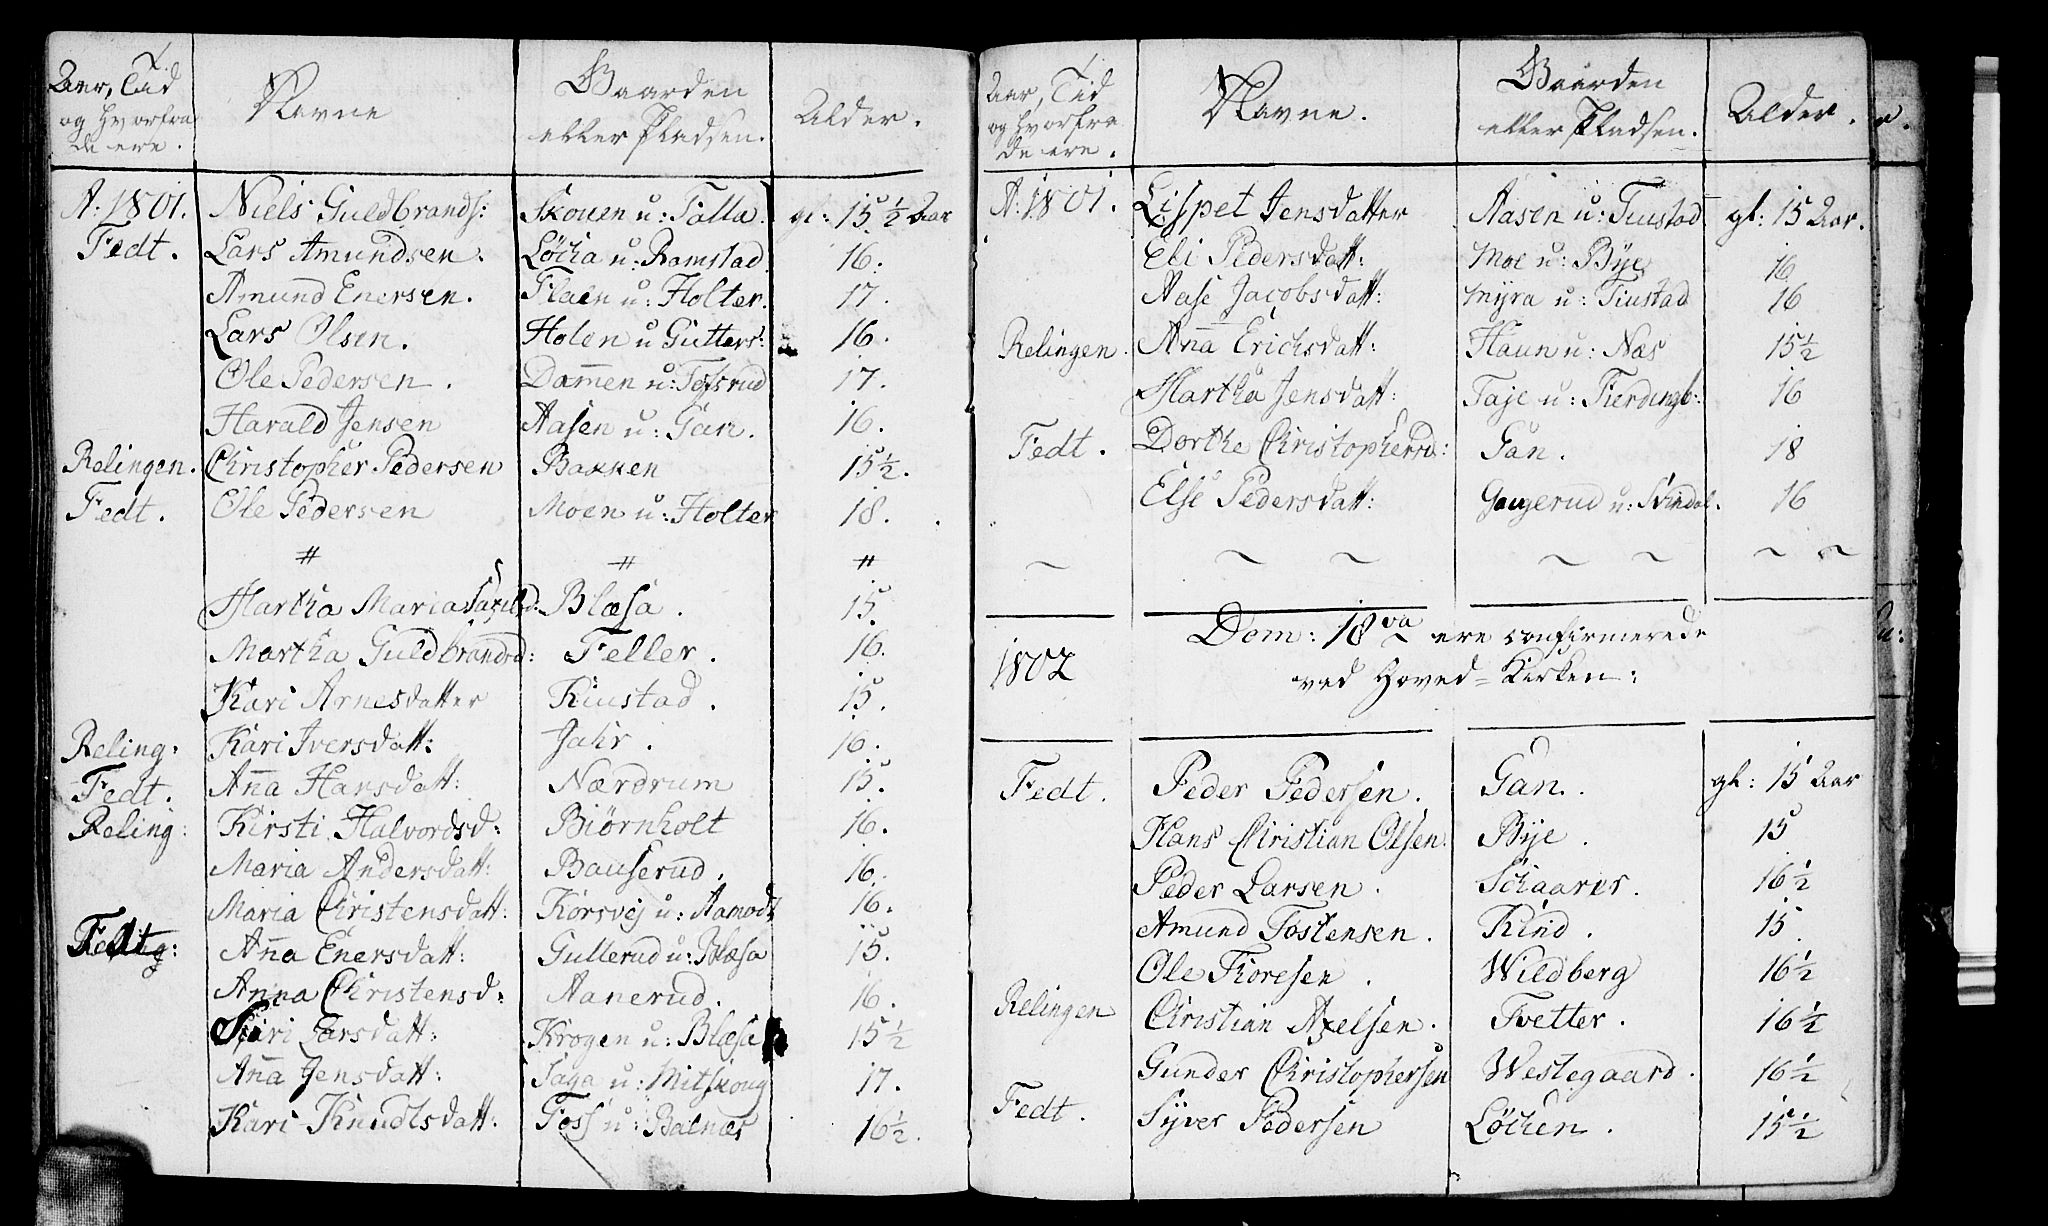 Aar, Tid og hvorfra de ere. Navne Gaarden eller Pladsen. Alder.
A: 1801. Niels Guldbrands: Skouen u: Falla. gl: 15 1/2 Aar
Fedt. Lars Amundsen. Löchia u: Ramstad 16.
Amund Enersen. Flaen u: Holter. 17.
Lars Olsen. Holen u Gutters: 16.
Ole Pedersen. Dam̅en u: Tofsrud 17.
Harald Jensen Aasen u: Gan. 16.
Relingen. Christopher Pedersen Bakken 15 1/2.
Fedt. Ole Pedersen Moen u: Holter 18.
# # #
Martha Maria Blæsa. 15.
Martha Guldbrandsd: Feller. 16.
Kari Arnesdatter Riustad. 15.
Reling: Kari Iversdatt: Jahr. 16.
Fedt. An̅a Hansdatt: Nærdrum 15.
Reling: Kirsti Halvordsd: Biørnholt 16.
Maria Andersdatt: Bauserud. 16.
Maria Christensdatt: Korsvej u: Aamodt 16.
An̅a Enersdatt: Gullerud u: Blæsa 15.
Anna Christensd: Aanerud. 16.
Siri Larsdatt: Krogen u: Blæsa 15 1/2
An̅a Jensdatt: Saga u: Mitskoug 17.
Kari Knudtsdatt: Foss u: Balnes 16 1/2.
Aar, Tid og hvorfra de ere. Navne. Gaarden eller Pladsen. Alder.
A: 1801. Lispet Jensdatter Aasen u: Tiustad gl: 15 Aar.
Eli Pedersdatt: Moe u: Bÿe 16
Aase Jacobsdatt: Mÿra u: Tiustad 16
Relingen. An̅a Erichsdatt: Haun u: Nas 15 1/2
Martha Jensdatt: Taje u: Fierdingb: 16
Fedt. Dorthe Christophersd: Gan. 18
Else Pedersdatt: Gougerud u: Svindal. 16
~ ~ ~ ~ ~ ~ ~
1802 Dom: 18va ere confirmerede
ved Hoved-Kirken:
Fedt. Peder Pedersen. Gan. gl: 15 Aar
Hans Christian Olsen. Bÿe. 15
Peder Larsen. Schaarer. 16 1/2
Amund Tostensen. Kind. 15
Ole Thoresen. Wildberg 16 1/2
Relingen Christian Axelsen. Tvetter. 16 1/2
Gunder Christophersen Westegaard. 16 1/2
Fedt. Sÿver Pedersen Löchen. 15 1/2